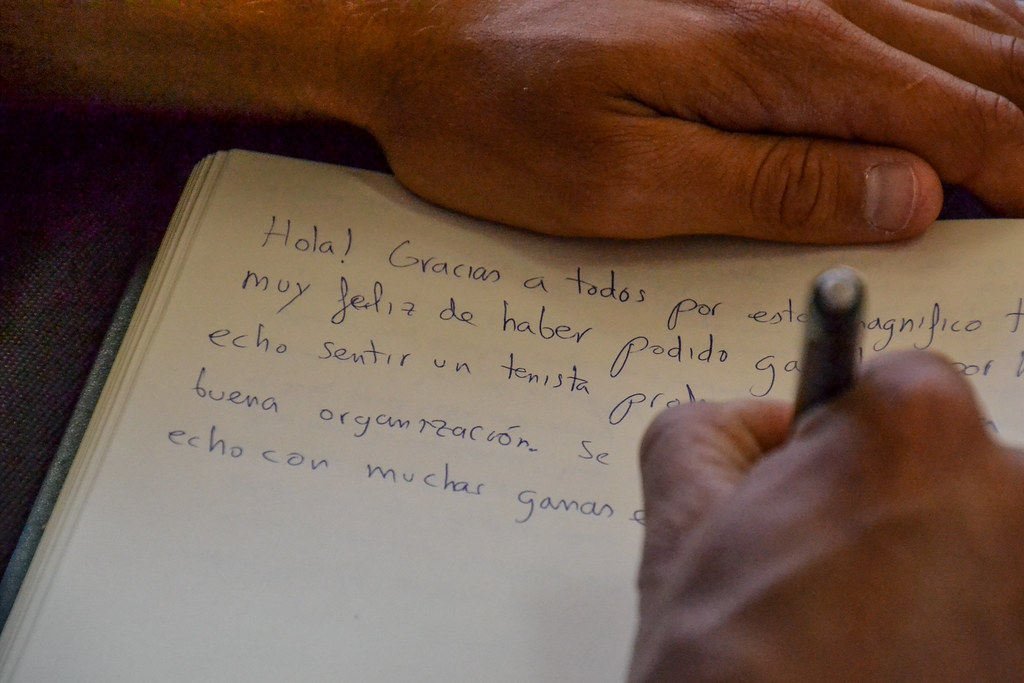 Hola! Gracias a todos por este magnifico
muy feliz de haber podido por
echo sentir un tenista
buena organización. Se
echo con muchas ganas